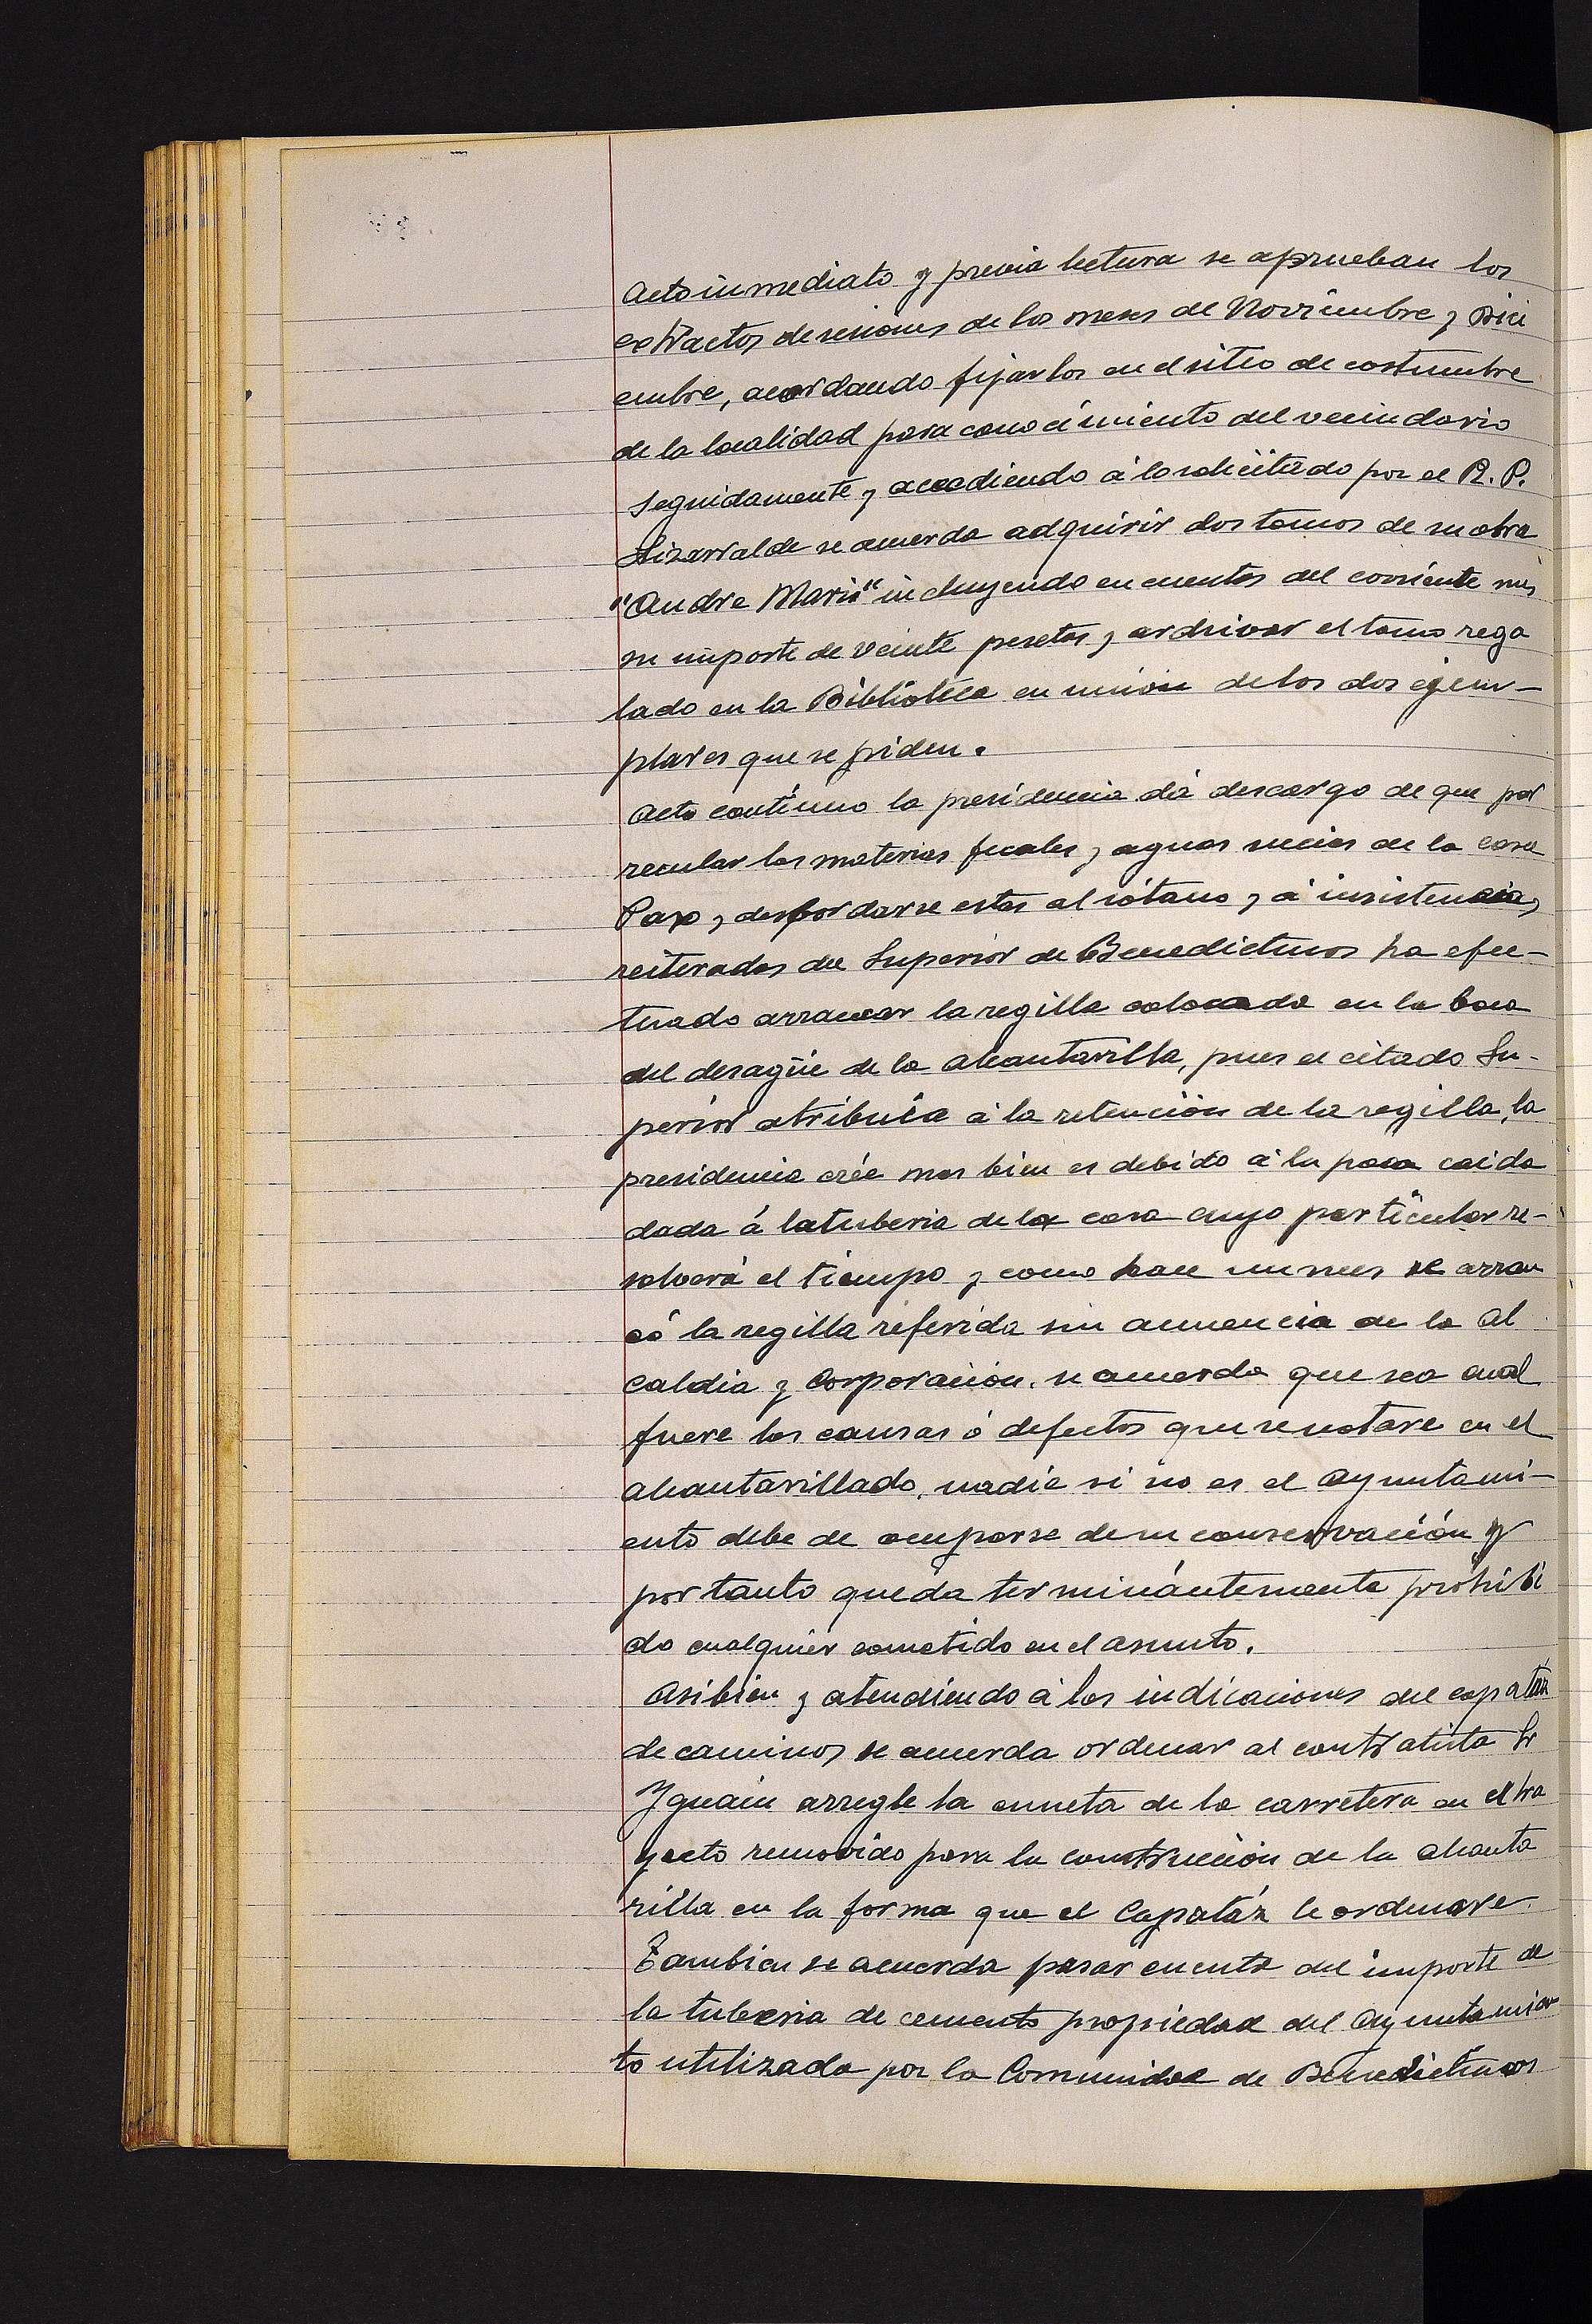 Acto inmediato y previa lectura se aprueban los
extractos de sesiones de los meses de Noviembre y Dici
embre, acordando fijarlos en el sitio de costumbre
de la localidad para conocimiento del vecindario
Seguidamente y accediendo á lo solicitado por el R. P.
Lizarralde se acuerda adquirir dos tomos de su obra
"Andra Mari" incluyendo en cuentas del corriente mes
su importe de veinte pesetas y archivar el tomo rega
lado en la Biblioteca en unión de los dos ejem-
plares que se piden.
Acto continuo la presidencia dá descargo de que por
recular las materias fecales y aguas sucias de la casa
Pax y desbordarse estas al sótano y á insistencias
reiteradas del Superior de Benedictinos ha efec-
tuado arrancar la regilla colocada en la boca
del desagüe de la alcantarilla, pues el citado Su-
perior atribuía á la retención de la regilla, la
presidencia crée mas bien es debido á la poca caida
dada á la tuberia de la casa cuyo particular re-
solverá el tiempo y como hace un mes se arran
có la regilla referida sin anuencia de la Al
caldia y Corporación, se acuerda que sea cual
fuere las causas ó defectos que se notare en el
alcantarillado, nadie si no es el Ayuntami-
ento debe de ocuparse de su conservación y
por tanto queda terminántemente prohibi
do cualquier cometido en el asunto.
Asibien y atendiendo á las indicaciones del capatáz
de caminos se acuerda ordenar al contratista Sr
Iguain arregle la cuneta de la carretera en el tra
yecto removido para la construcción de la alcanta
rilla en la forma que el Capatáz le ordenare.
Tambien se acuerda pasar cuenta del importe de
la tuberia de cemento propiedad del Ayuntamien
to utilizada por la Comunidad de Benedictinos